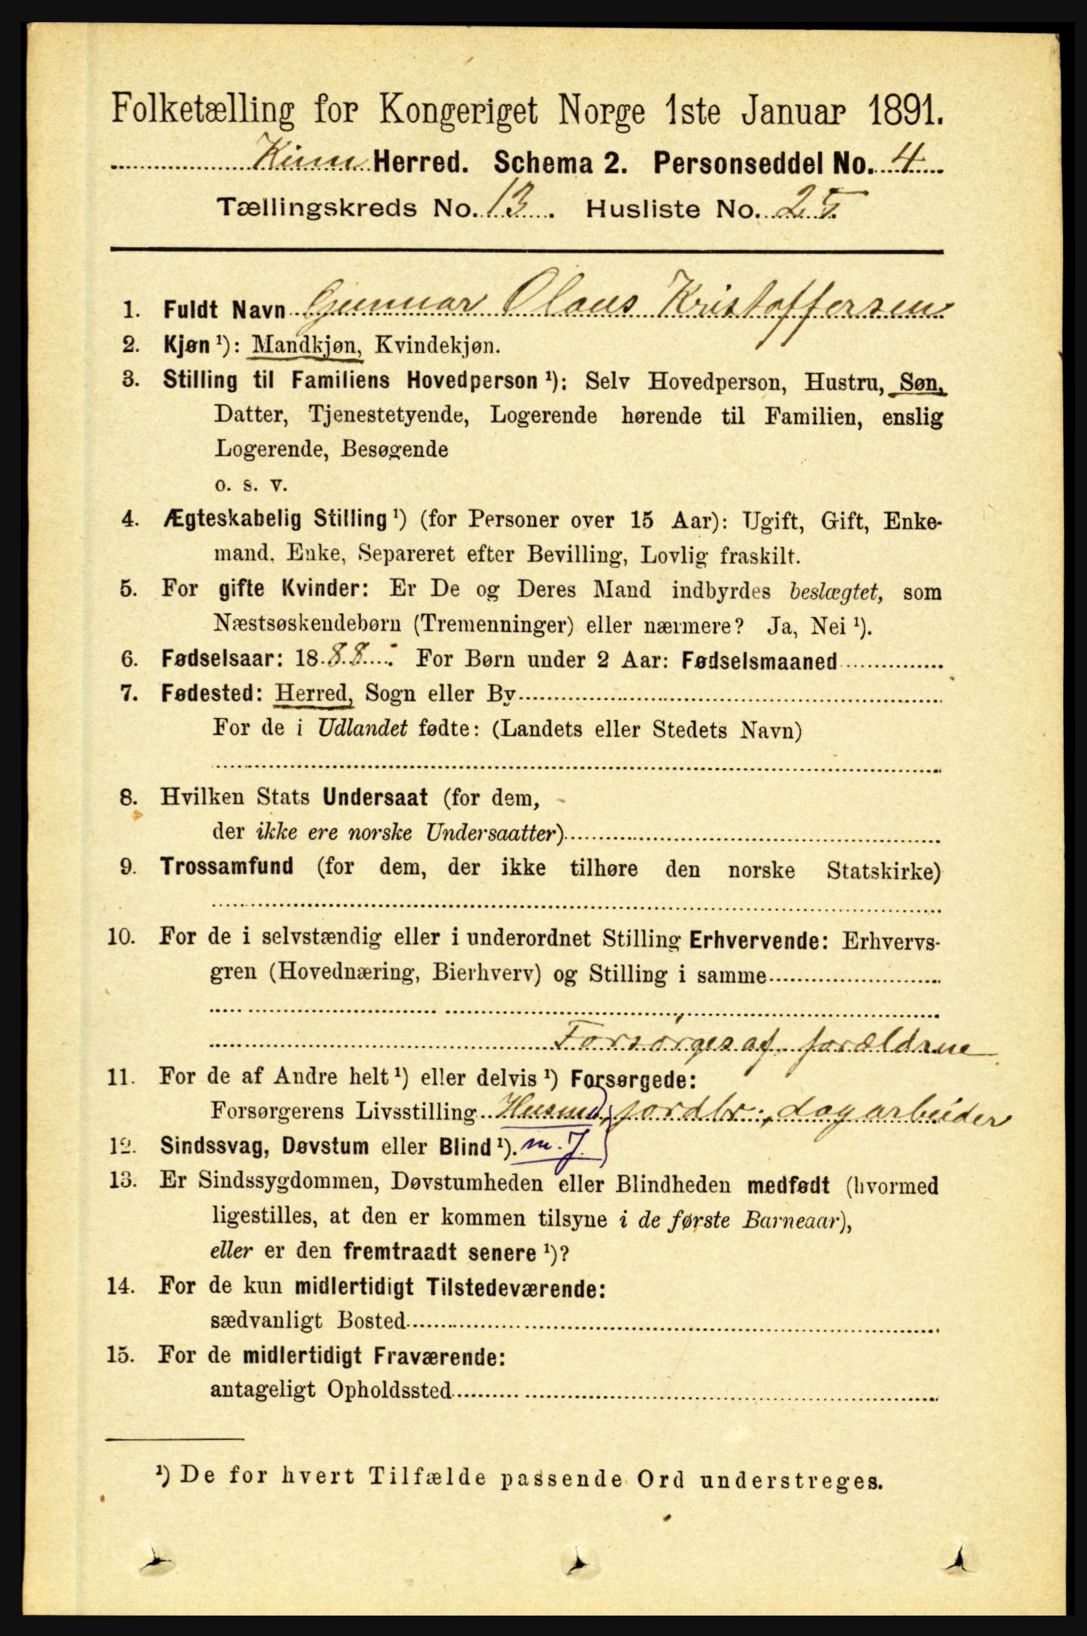 Folketælling for Kongeriget Norge 1ste Januar 1891.
Kinn Herred. Schema 2. Personseddel No. 4
Tællingskreds No. 13. Husliste No. 25.
1. Fuldt Navn Gunnar Olaus Kristoffersen
2. Kjøn ¹): Mandkjøn, Kvindekjøn.
3. Stilling til Familiens Hovedperson ¹): Selv Hovedperson, Hustru, Søn,
Datter, Tjenestetyende, Logerende hørende til Familien, enslig
Logerende, Besøgende
o. s. v.
4. Ægteskabelig Stilling ¹) (for Personer over 15 Aar): Ugift, Gift, Enke-
mand, Enke, Separeret efter Bevilling, Lovlig fraskilt.
5. For gifte Kvinder: Er De og Deres Mand indbyrdes beslægtet, som
Næstsøskendebørn (Tremenninger) eller nærmere? Ja, Nei ¹).
6. Fødselsaar: 1888. For Børn under 2 Aar: Fødselsmaaned
7. Fødested: Herred, Sogn eller By
For de i Udlandet fødte: (Landets eller Stedets Navn)
8. Hvilken Stats Undersaat (for dem,
der ikke ere norske Undersaatter)
9. Trossamfund (for dem, der ikke tilhøre den norske Statskirke)
10. For de i selvstændig eller i underordnet Stilling Erhvervende: Erhvervs-
gren (Hovednæring, Bierhverv) og Stilling i samme
Forsørges af forældrene
11. For de af Andre helt ¹) eller delvis ¹) Forsørgede:
Forsørgerens Livsstilling Husmd, jordbr., dagarbeider
12. Sindssvag, Døvstum eller Blind ¹). m. J.
13. Er Sindssygdommen, Døvstumheden eller Blindheden medfødt (hvormed
ligestilles, at den er kommen tilsyne i de første Barneaar),
eller er den fremtraadt senere ¹)?
14. For de kun midlertidigt Tilstedeværende:
sædvanligt Bosted
15. For de midlertidigt Fraværende:
antageligt Opholdssted
¹) De for hvert Tilfælde passende Ord understreges.